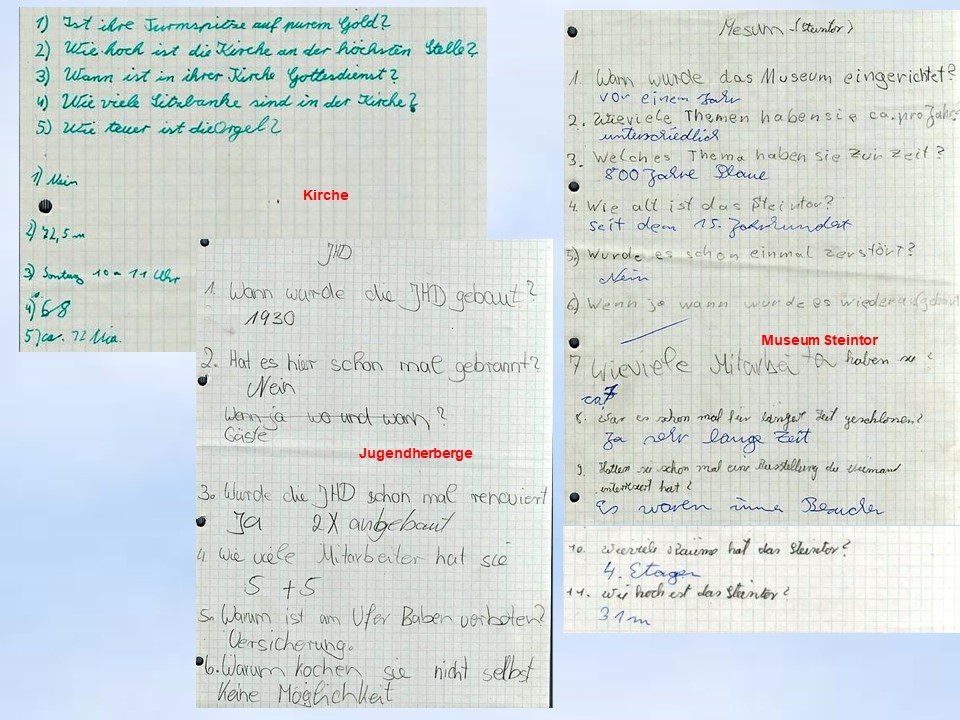 1) Ist ihre Turmspitze auf purem Gold?
2) Wie hoch ist die Kirche an der höchsten Stelle?
3) Wann ist in ihrer Kirche Gottesdienst?
4) Wie viele Sitzbänke sind in der Kirche?
5) Wie teuer ist die Orgel?
1) Nein
Kirche
2) 72,5 m
3) Sontag 10 - 11 Uhr
4) 68
5) ca. 72 Mio.
JHD
1. Wann wurde die JHD gebaut?
1930
2. Hat es hier schon mal gebrannt?
Nein
Wenn ja wo und wann?
Gäste
Jugendherberge
3. Wurde die JHD schon mal renoviert
Ja 2X angebaut
4. Wie viele Mitarbeiter hat sie
5 + 5
5. Warum ist am Ufer Baben verboten?
Versicherung.
6. Warum kochen sie nicht selbst
Keine Möglichkeit
Mesum - (Steintor)
1. Wann wurde das Museum eingerichtet?
vor einem Jahr
2. Wieviele Themen haben sie ca. pro Jahr
unterschiedlich
3. Welches Thema haben sie zur Zeit?
800 Jahre Plaue
4. Wie alt ist das Steintor?
seit dem 15. Jahrhundert
5) Wurde es schon einmal zerstört?
Nein
6) Wenn ja wann wurde es wieder aufgebaut
Museum Steintor
7 Wieviele Mitarbeiter haben sie?
ca 7
8. War es schon mal für länger Zeit geschlossen?
Ja sehr lange Zeit
9. Hatten sie schon mal eine Ausstellung die niemand
interesiert hat?
Es waren immer Besucher
10. Wieviele Räume hat das Steintor?
4. Etagen
11. Wie hoch ist das Steintor?
31m